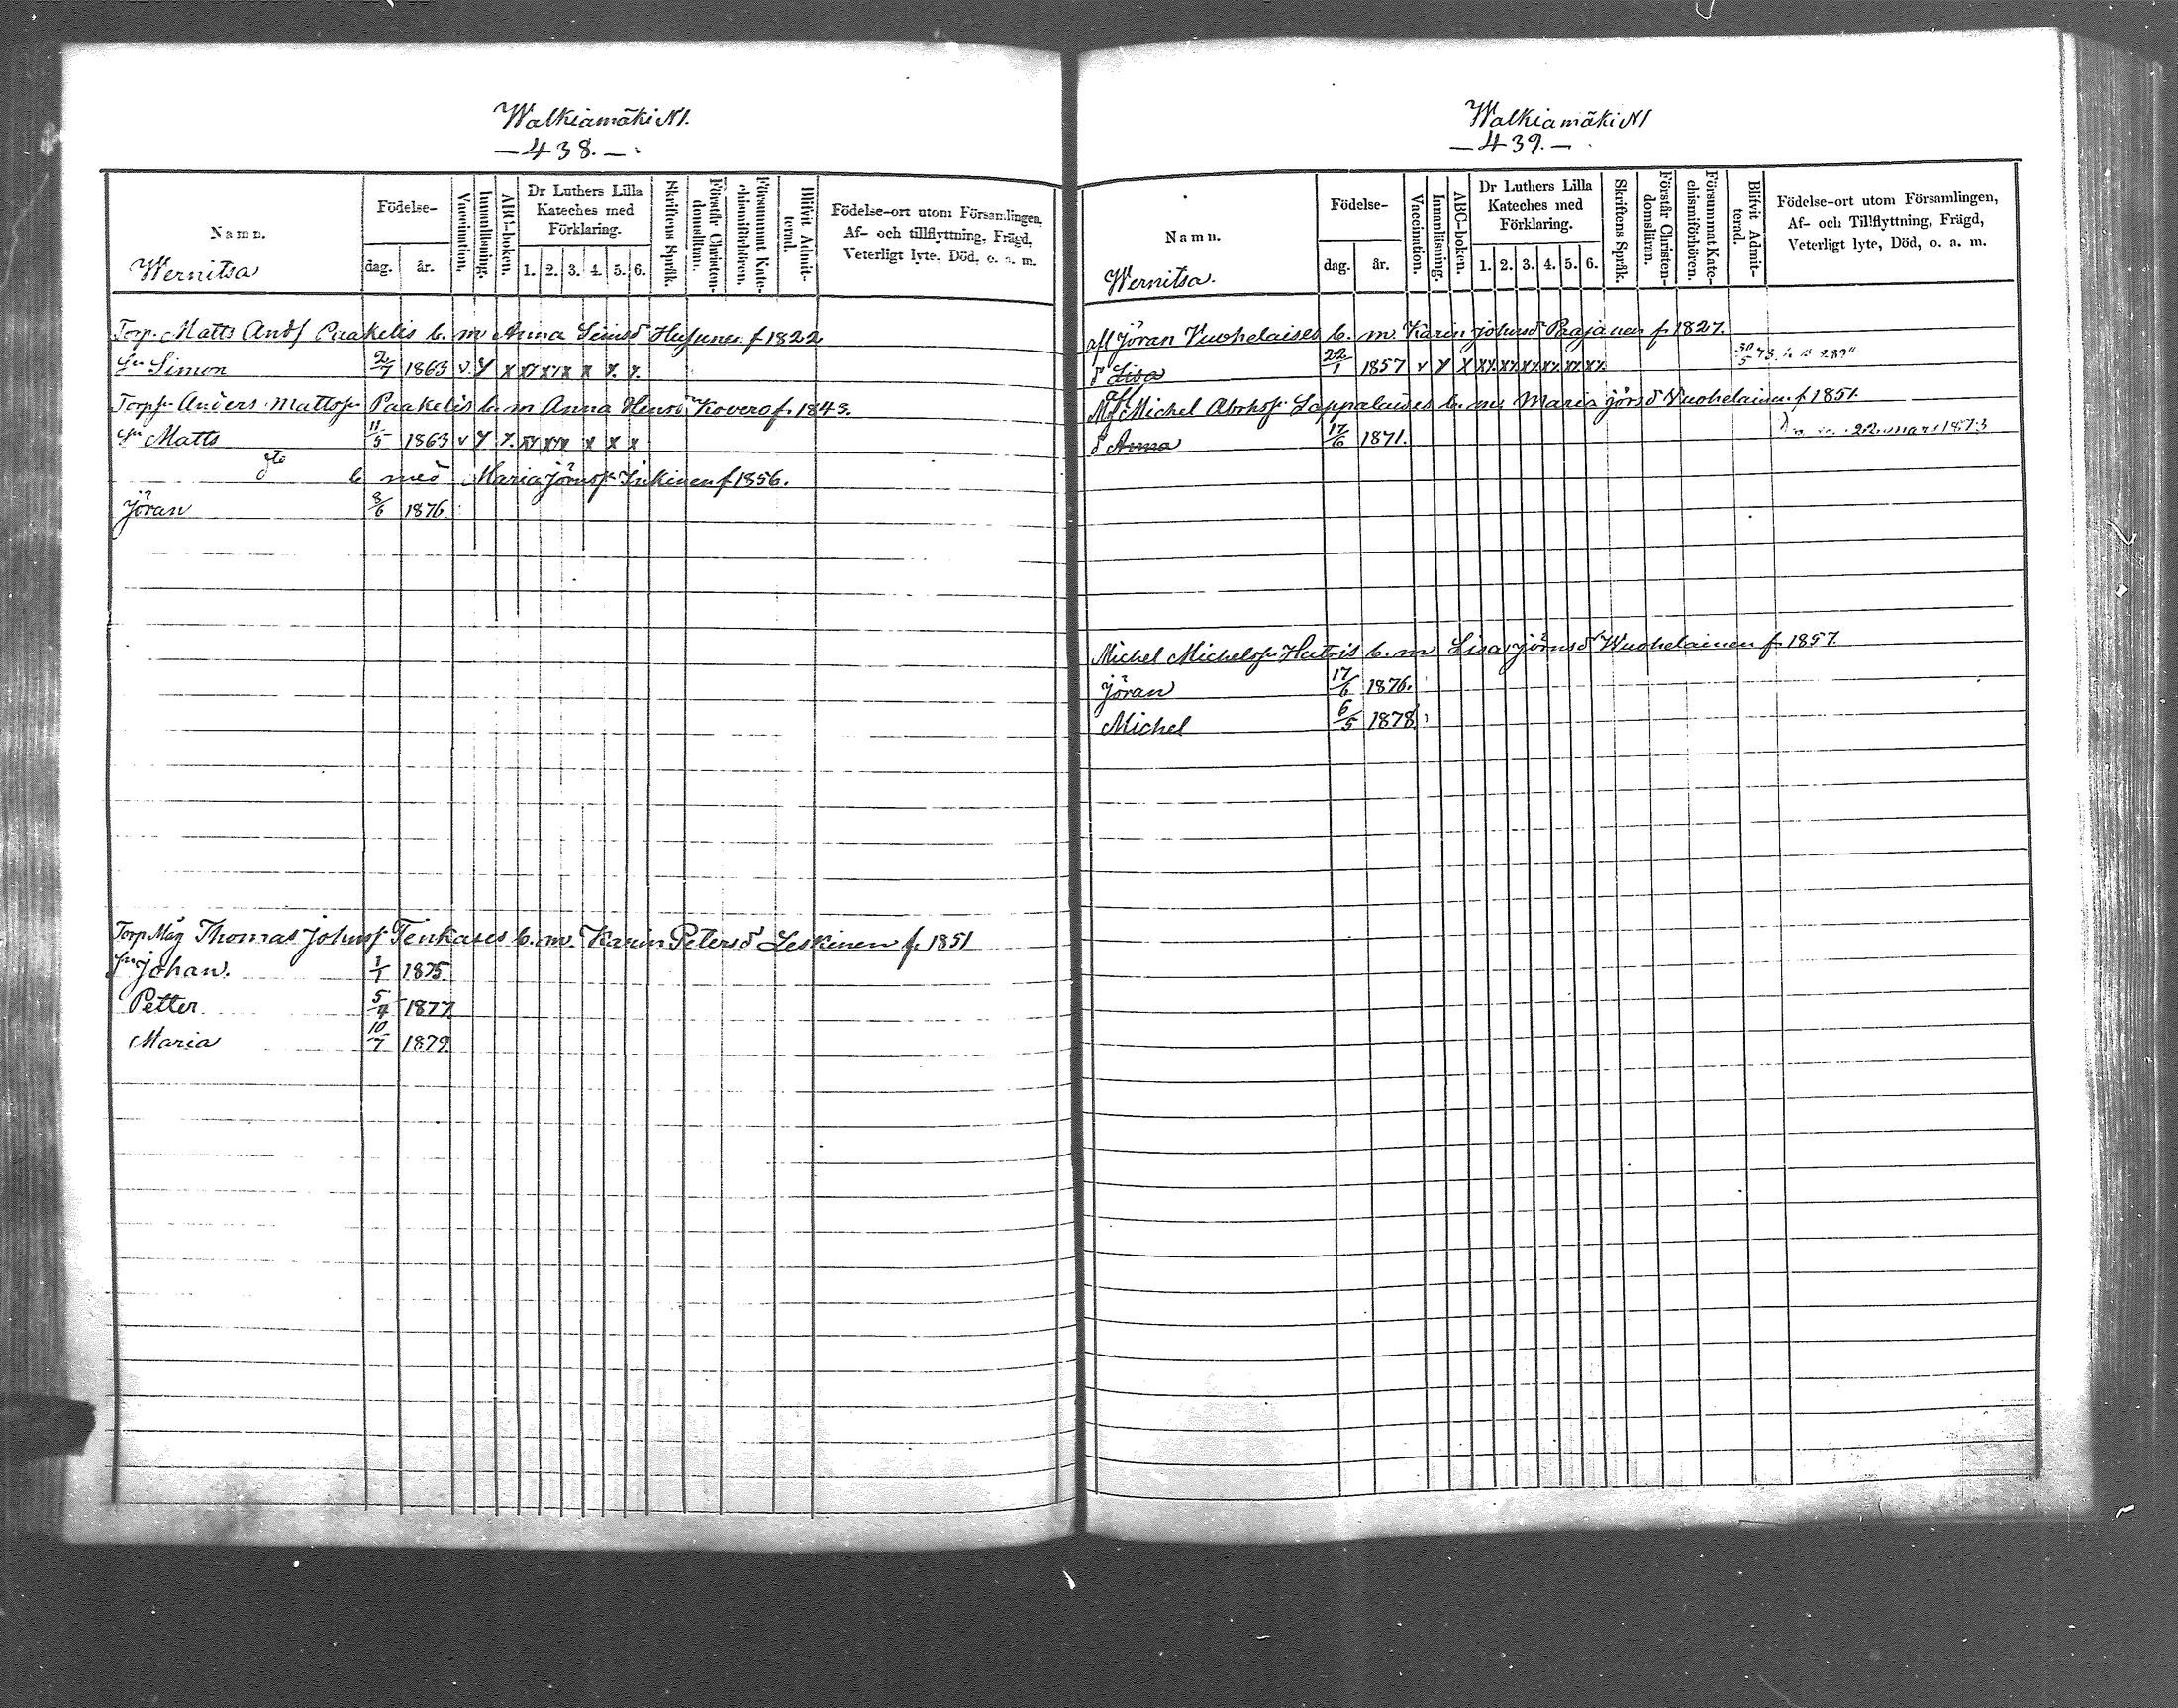 Walkiamäki N1.
— 438. —
Namn.
Wernitsa
Födelse-
dag. år.
Vaccination.
Innanläsning.
ABC-boken.
Dr Luthers Lilla Kateches med Förklaring.
1. 2. 3. 4. 5. 6.
Skriftens Språk.
Förstår Christendomslärnn.
Försummat Katechismiförhören.
Blifvit Admitterad.
Födelse-ort utom Församlingen,
Af- och tillflyttning, Frägd,
Veterligt lyte, Död, o. a. m.
Torp. Matts Andf Paakelis b. m Anna Simsd f 1822
Sn Simon 2/7 1863 v y x xx xxx x x x
Torpf Anders Mattsf Paakelis b. m Anna Henrd Kovero f. 1843.
Sn Matts 11/5 1863 v y x xx xxx x x x
dto b med Maria Jörnsf f 1856.
Jöran 8/6 1876
Torp Måg Thomas Johnsf Tenkases b. m. Karin Petersd Leskinen f. 1851
Sn Johan. 1/1 1875
Petter 5/4 1877
Maria 10/7 1879
Walkiamäki N1
— 439. —
Namn.
Wernitsa.
Födelse-
dag. år.
Vaccination.
Innanläsning.
ABC-boken.
Dr Luthers Lilla Kateches med Förklaring.
1. 2. 3. 4. 5. 6.
Skriftens Språk.
Förstår Christendomslärnn.
Försummat Katechismiförhören.
Blifvit Admitterad.
Födelse-ort utom Församlingen,
Af- och Tillflyttning, Frägd,
Veterligt lyte, Död, o. a. m.
afl Jöran Vuohelaises b. m. Karin Johnsd Paajanen f. 1827.
d Lisa 22/1 1857 v y x xx xx xx xx xx xx
Michel Abrhsf Lappalaises b. m. Maria Jörsd Vuohelainen f 1851.
d Anna 17/6 1871. 22 mars 1873
Michel Michelsf Hutris b. m Lisa Jörnsd Wuohelainen f. 1857
Jöran 17/6 1876.
Michel 6/5 1878